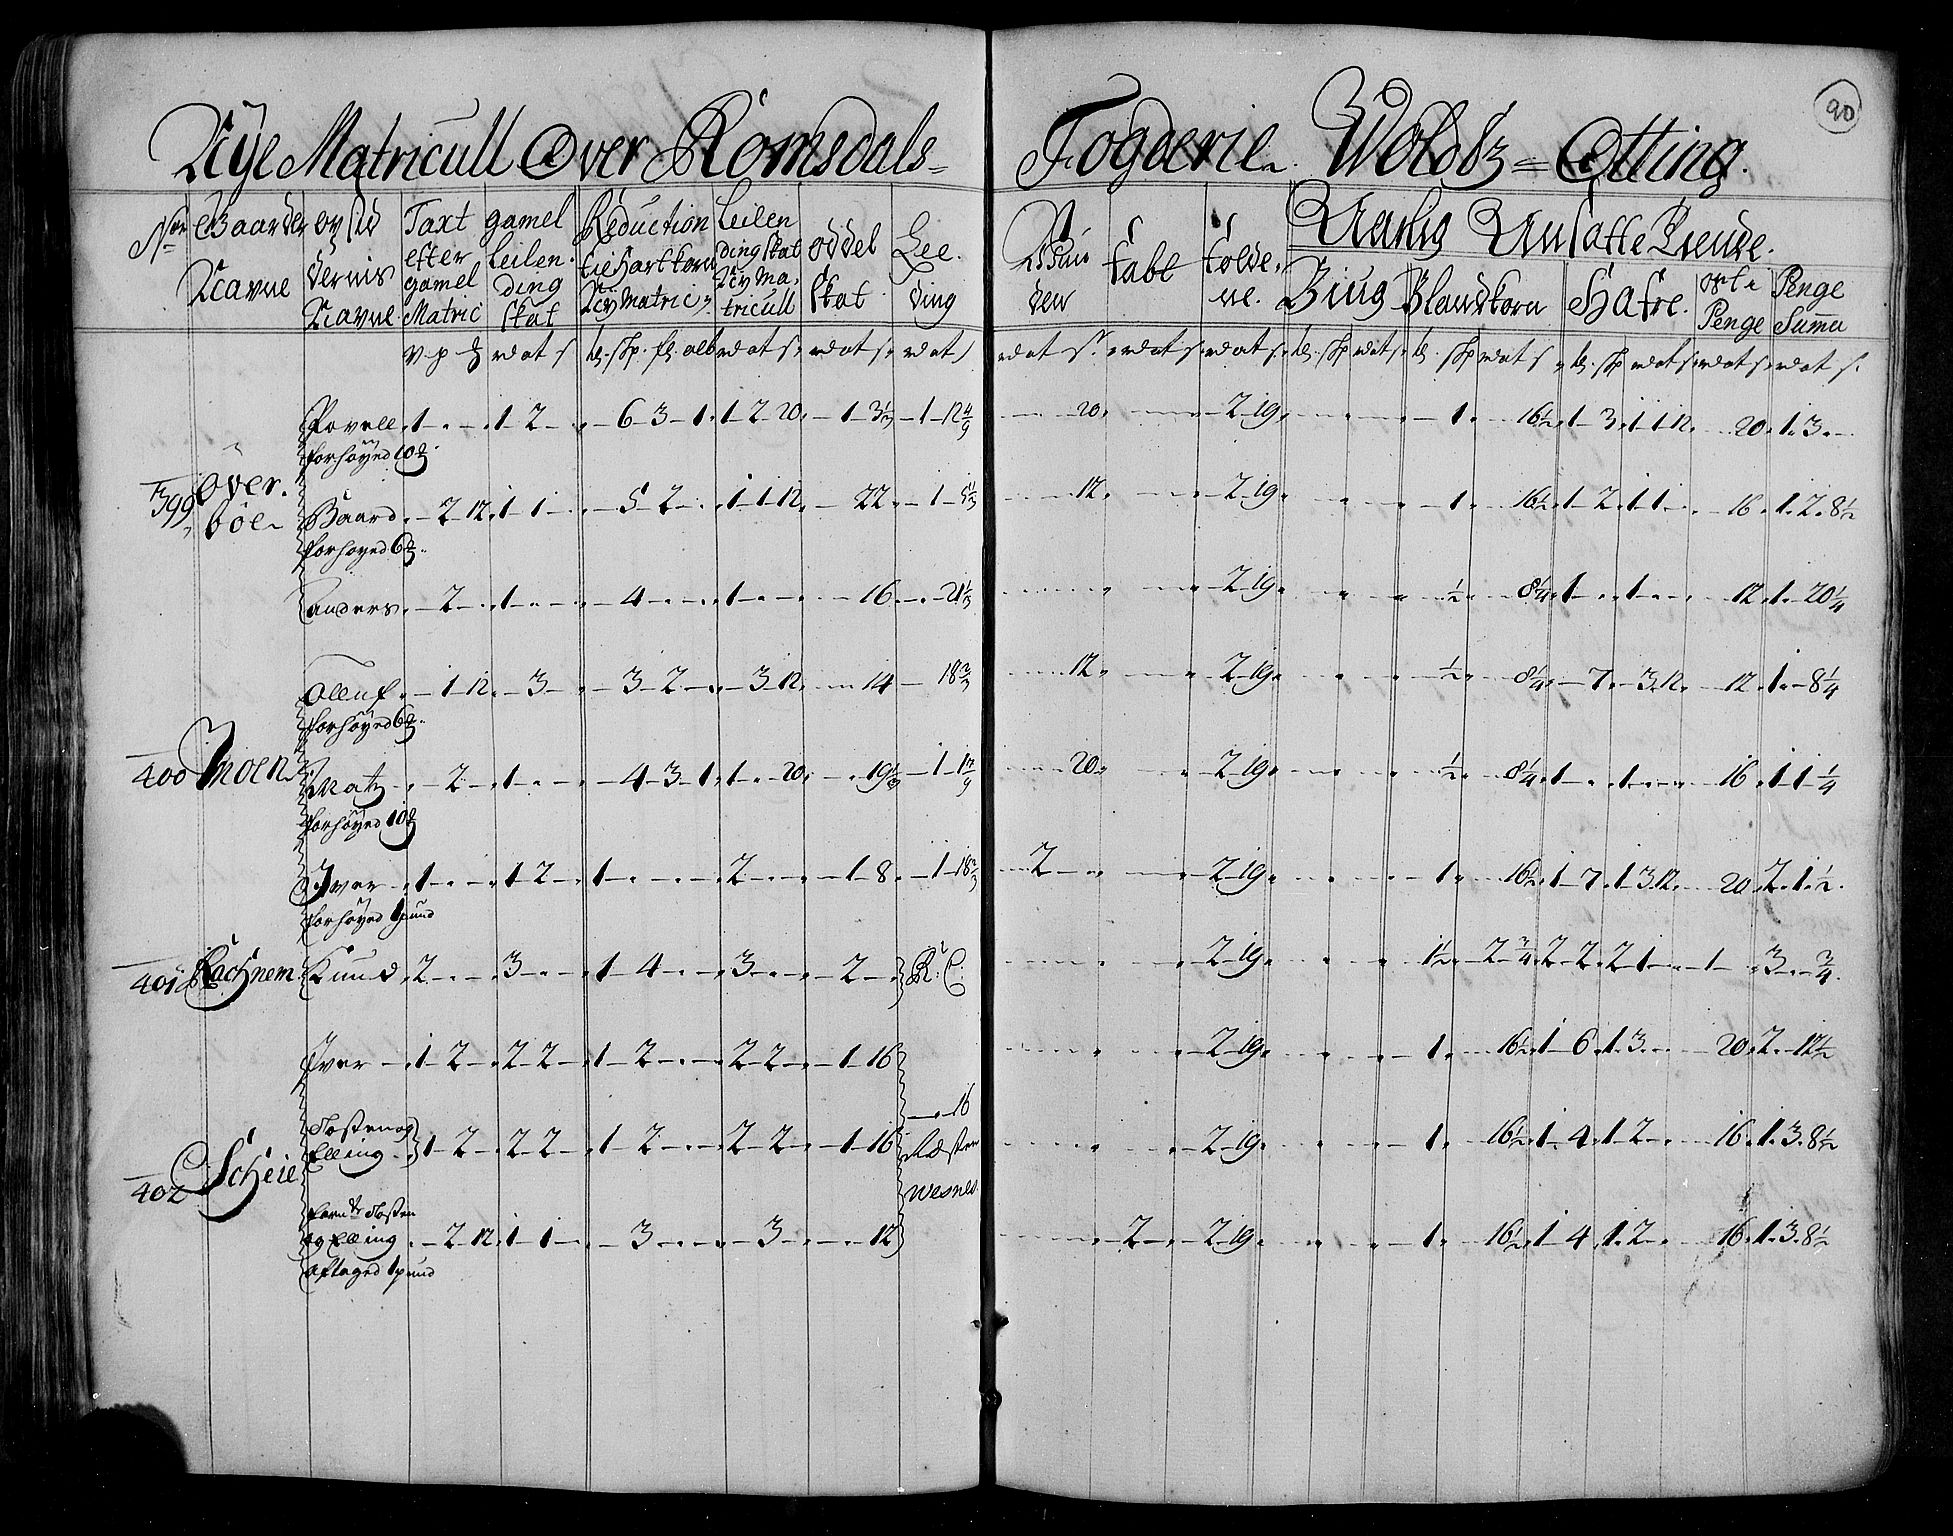 Nÿe Matricull Over Romsdals= Fogderie Woldtz=Otting.
90
No. Gaarders Navne | opsidernis Navne | Taxt efter gamel Matric | gamel Leilending Skat | Reduction til Hartkorn Ny Matric: | Leilending Skat Ny Matricull | oddel Skat | Leeding
Rettis Ansatte Tiende.
Biug | Blandkorn | Hafre. | Oste Penge | Penge Suma
v p | rd ort s | rd ort s | rd ort s | rd ort
Povell 1 - 1 2 - 6 3 1 1 2 20 1 3½ 1 12 4/9 20 2 19 1 16½ 1 3 1 1 12 20 1 3
forhøyed 10
399 Øver-
bøe Baard 2 12 1 1 5 2 1 1 12 22 1 5⅓ 12 2 19 1 16½ 1 2 1 1 16 1 2 8½
forhøyed 6
anders 2 1 4 1 16 21⅓ 2 19 ½ 8¼ 1 1 12 1 20¼
Olluf 1 12 3 3 2 3 12 14 18⅔ 12 2 19 ½ 8¼ 7 3 12 12 1 8¼
forhøyed 6
400 Moen Matz 2 1 4 3 1 1 20 19 1 1 20 2 19 ½ 8¼ 1 1 16 1 1 ¼
forhøyed 10
Iver 1 1 2 1 2 1 8 1 18⅔ 2 2 19 1 16½ 1 7 1 3 12 20 2 1 ½
forhøyed 1 pund
401 Rachnem Knud 2 3 1 4 3 2 R: C: 2 19 1½ 2 ¾ 2 2 2 1 1 3 ¾
Iver 1 2 2 2 1 2 2 2 1 16 2 19 1 16½ 1 6 1 3 20 2 12½
16
Tosten og
Elling 1 2 2 2 1 2 2 2 1 16 Resten 2 19 1 16½ 1 4 1 2 16 1 3 8½
402 Scheie wesnes
Tosten
og Elling 2 12 1 1 3 3 12 2 2 19 1 16½ 1 4 1 2 16 1 3 8½
Aftaged 1 pund